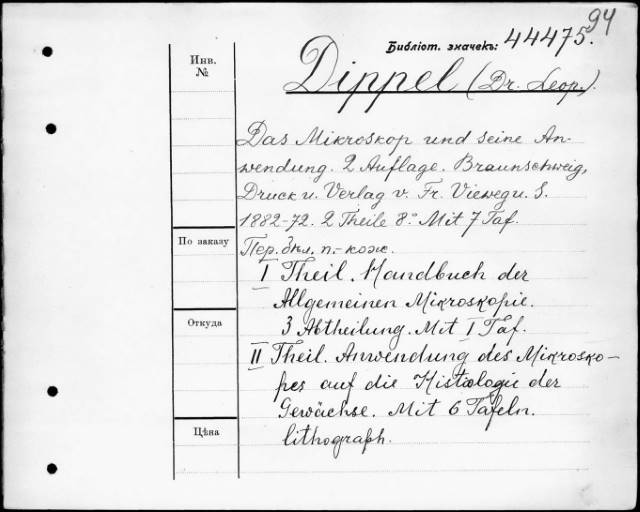 94
Библіот. значекъ: 44475.
Инв.
№
Dippel (Dr. Leop.).
Das Mikroskop und seine An-
wendung. 2 Auflage. Braunschweig,
Druck u. Verlag v. Fr. Vieweg u. S.
1882-72. 2 Theile 8º Mit 7 Taf.
По заказу
Пер. 3 кл. п.-кож.
I Theil. Handbuch der
Allgemeinen Mikroskopie.
Откуда
3 Abtheilung. Mit I Taf.
II Theil. Anwendung des Mikrosko-
pes auf die Histiologie der
Gewächse. Mit 6 Tafeln.
Цѣна
lithograph.